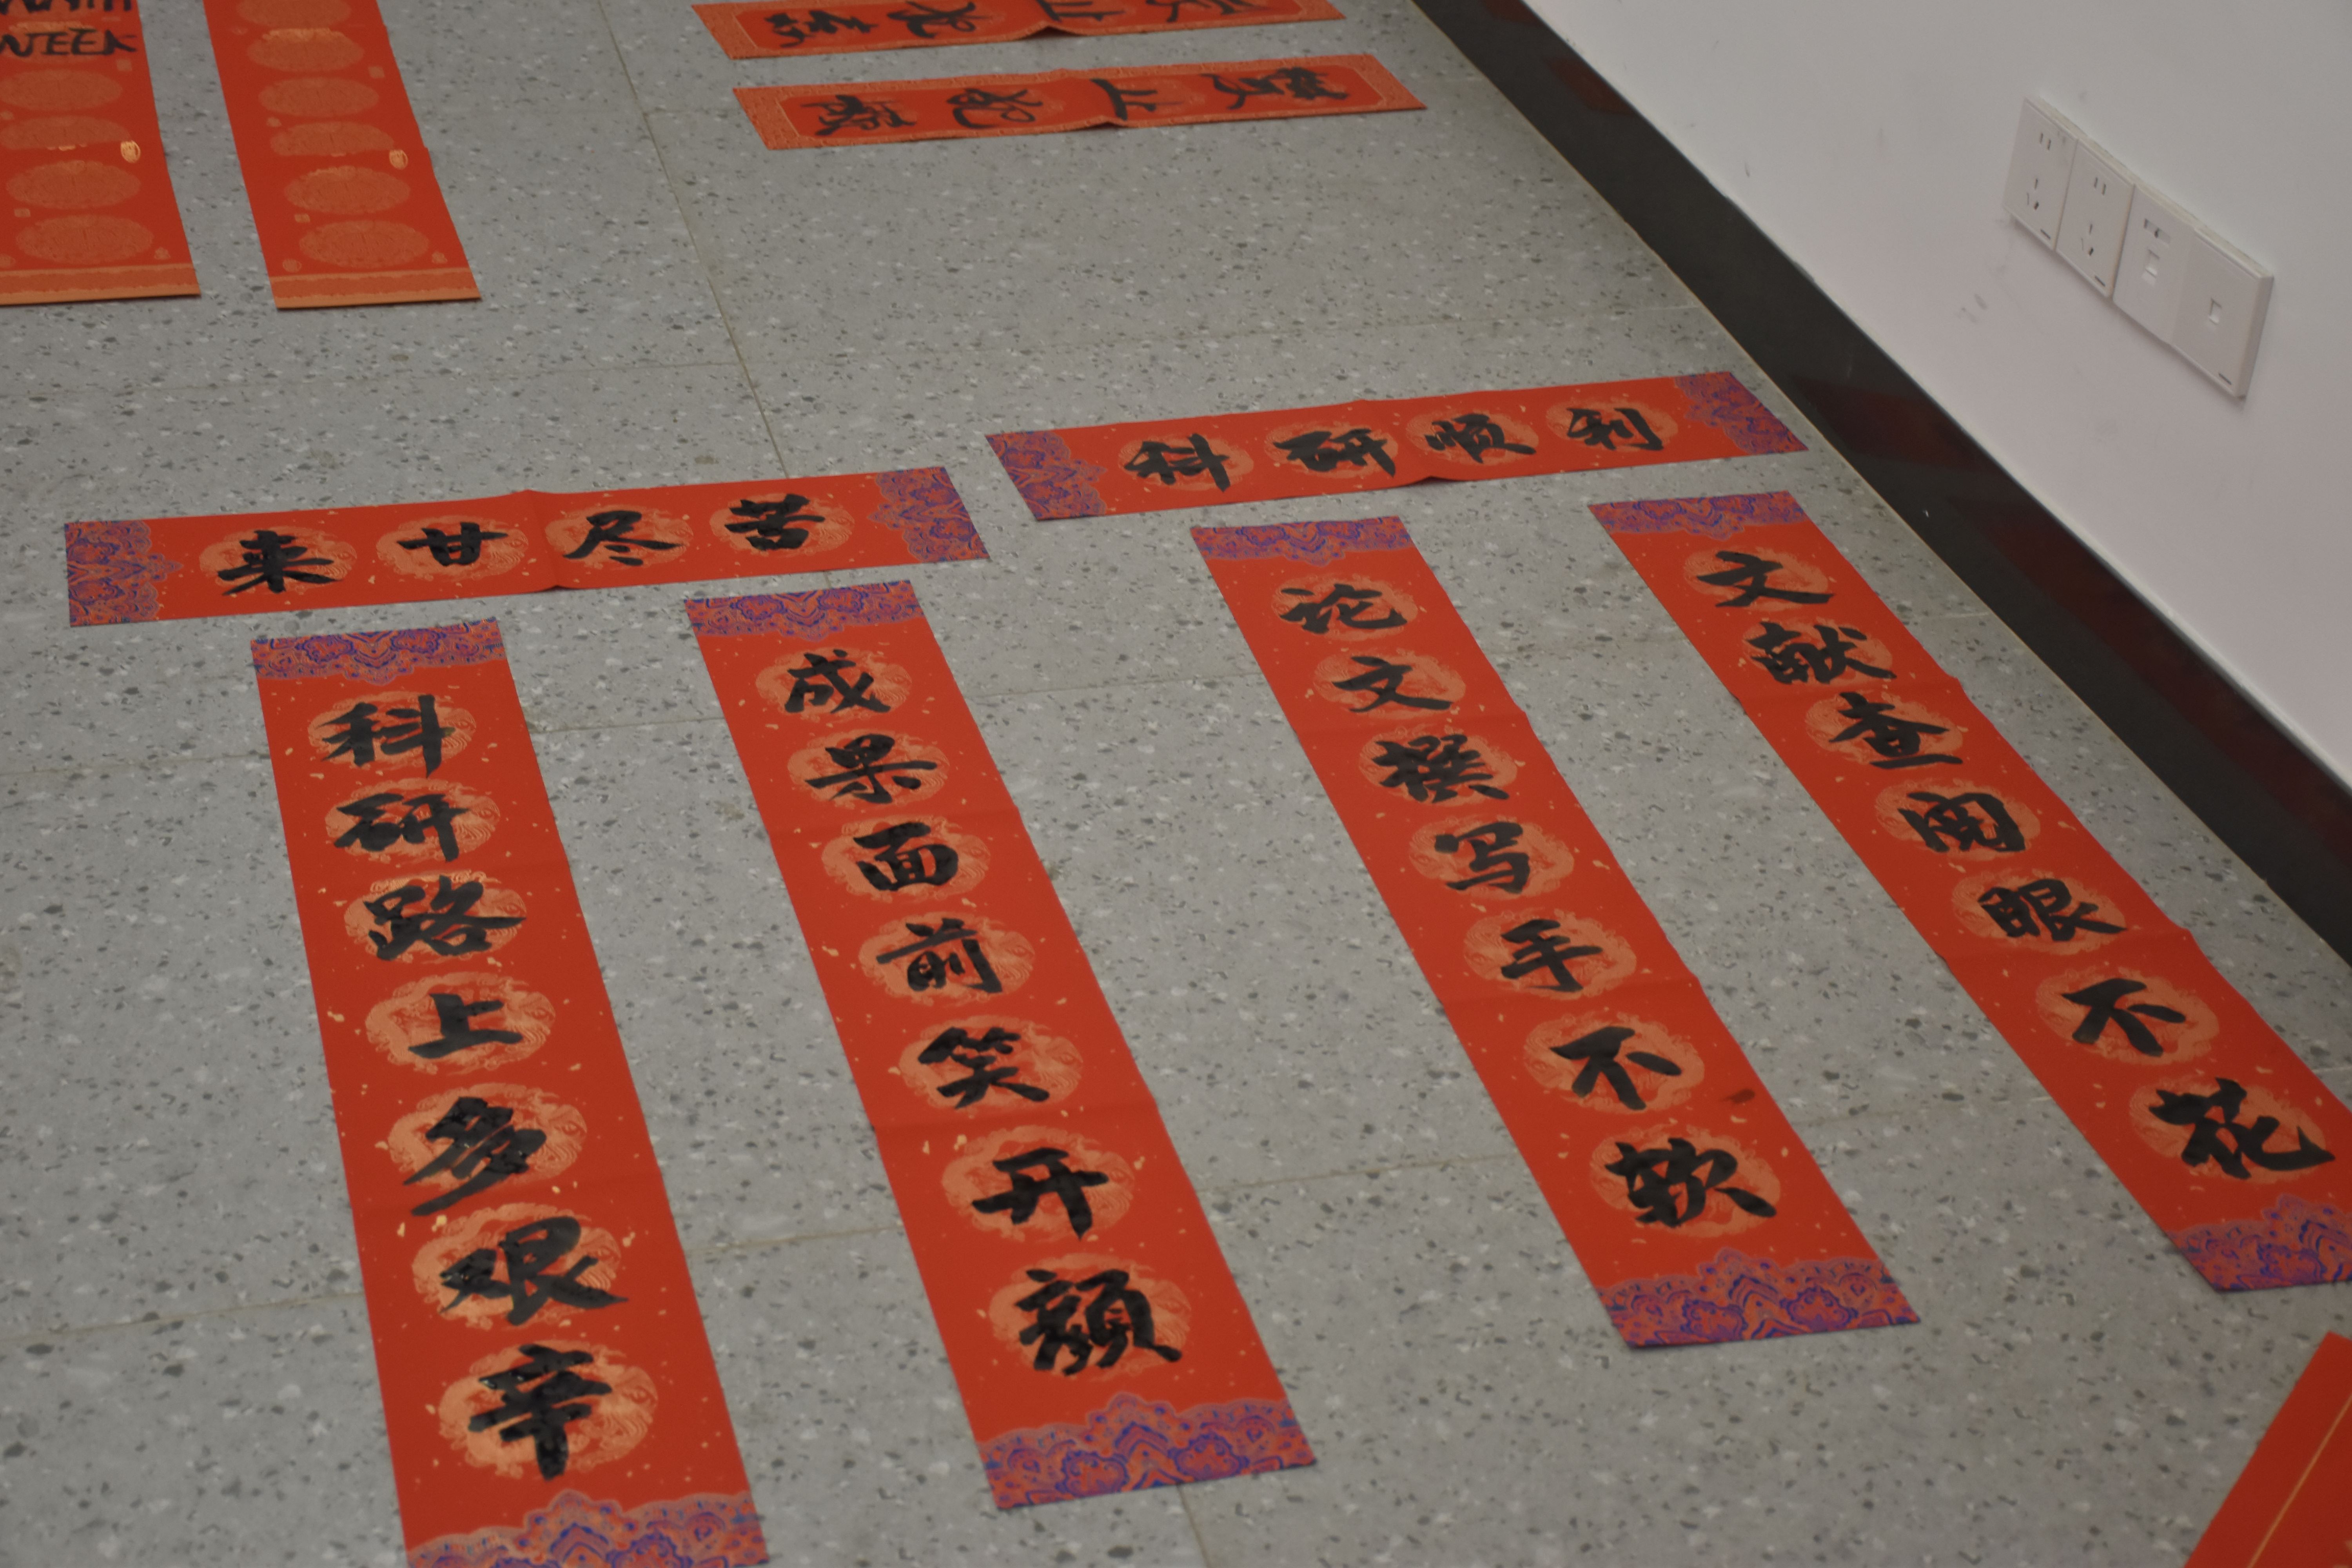 WEEK
来甘尽苦
科研顺利
科研路上多艰辛
成果面前笑开颜
论文撰写手不软
文献查阅眼不花